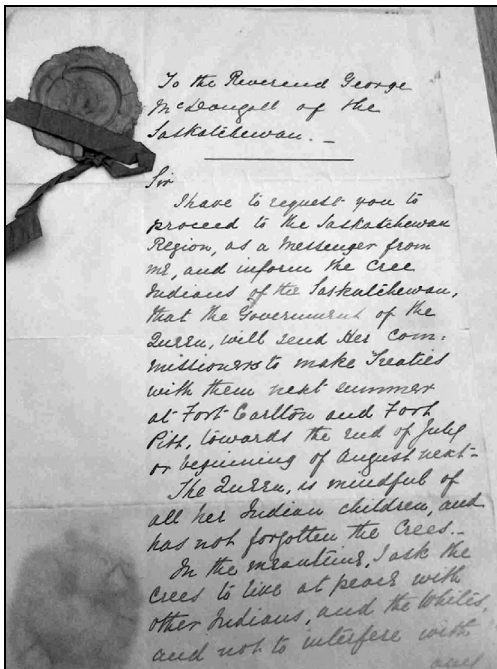 To the Reverend George
McDougall of the
Saskatchewan. _
Sir
I have to request you to
proceed to the Saskatchewan
Region, as a Messenger from
me, and inform the Cree
Indians of the Saskatchewan,
that the Government of the
Queen, will send Her Com:
missioners to make Treaties
with them next summer
at Fort Carlton and Fort
Pitt, towards the end of July
or beginning of August next-
The Queen, is mindful of
all her Indian children, and
has not forgotten the Crees._
In the meantime, I ask the
Crees to live at peace with
other Indians, and the Whites,
and not to interfere with